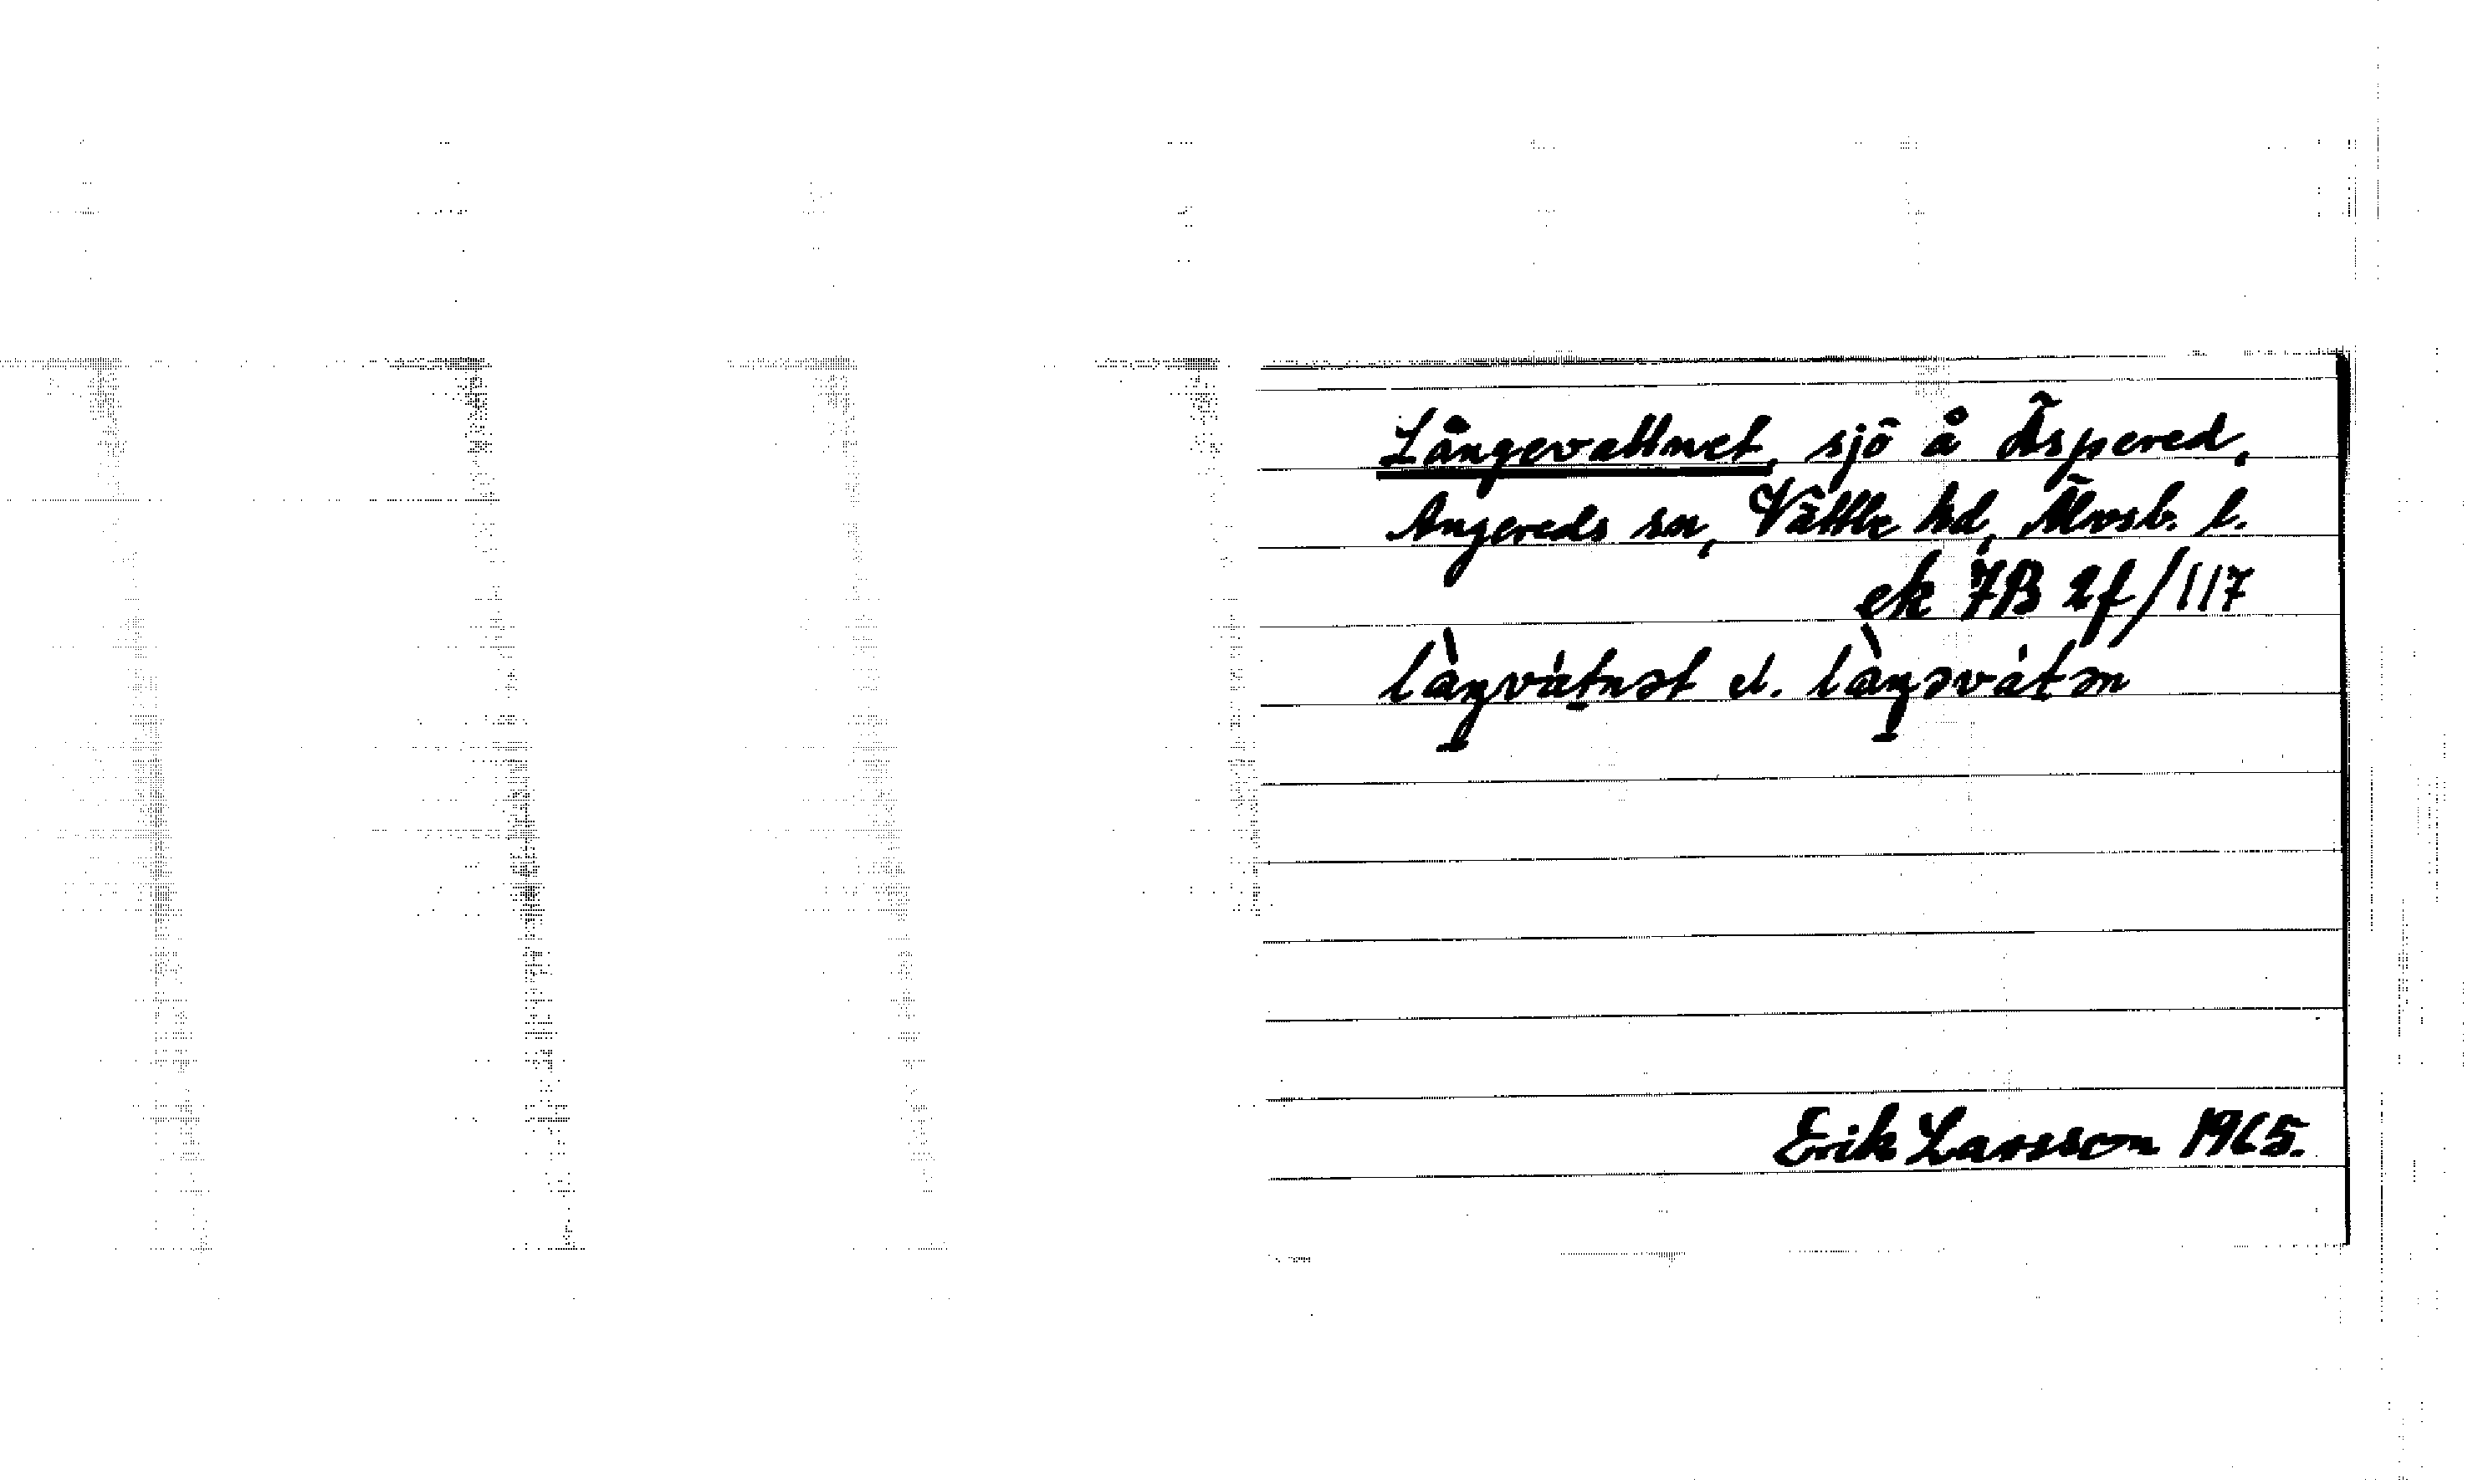 Långevattnet, sjö å Äspered,
Angereds sn, Vättle hd, Älvsb. l.
ek 7B 2f/117
làŋvátnət el. làŋəvátən
Erik Larsson 1965.